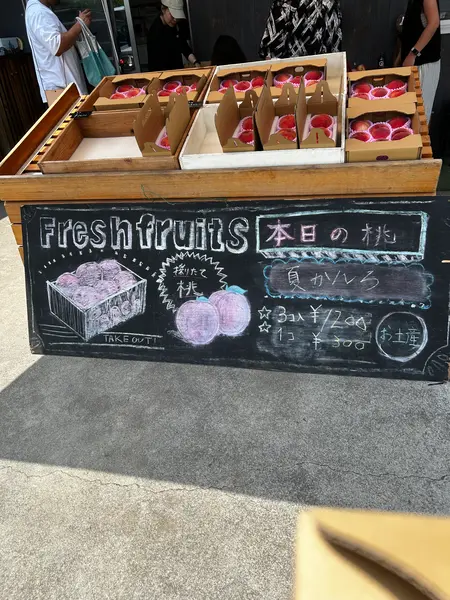 Fresh fruits
採りたて
桃
TAKE OUT!
本日の桃
夏かんろ
☆ 3コ入 ¥1200
☆ 1コ ¥300
お土産